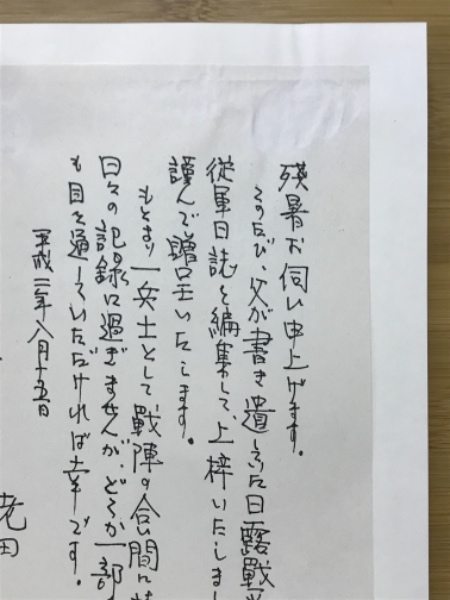 残暑お伺い申上げます。
このたび、父が書き遺した日露戦
従軍日誌を編集して、上梓いたしま
謹んで贈呈いたします。
もとより一兵士として戦陣の合間に
日々の記録に過ぎませんが、どうか一部
も目を通していただければ幸です。
平成二年八月十五日
老田